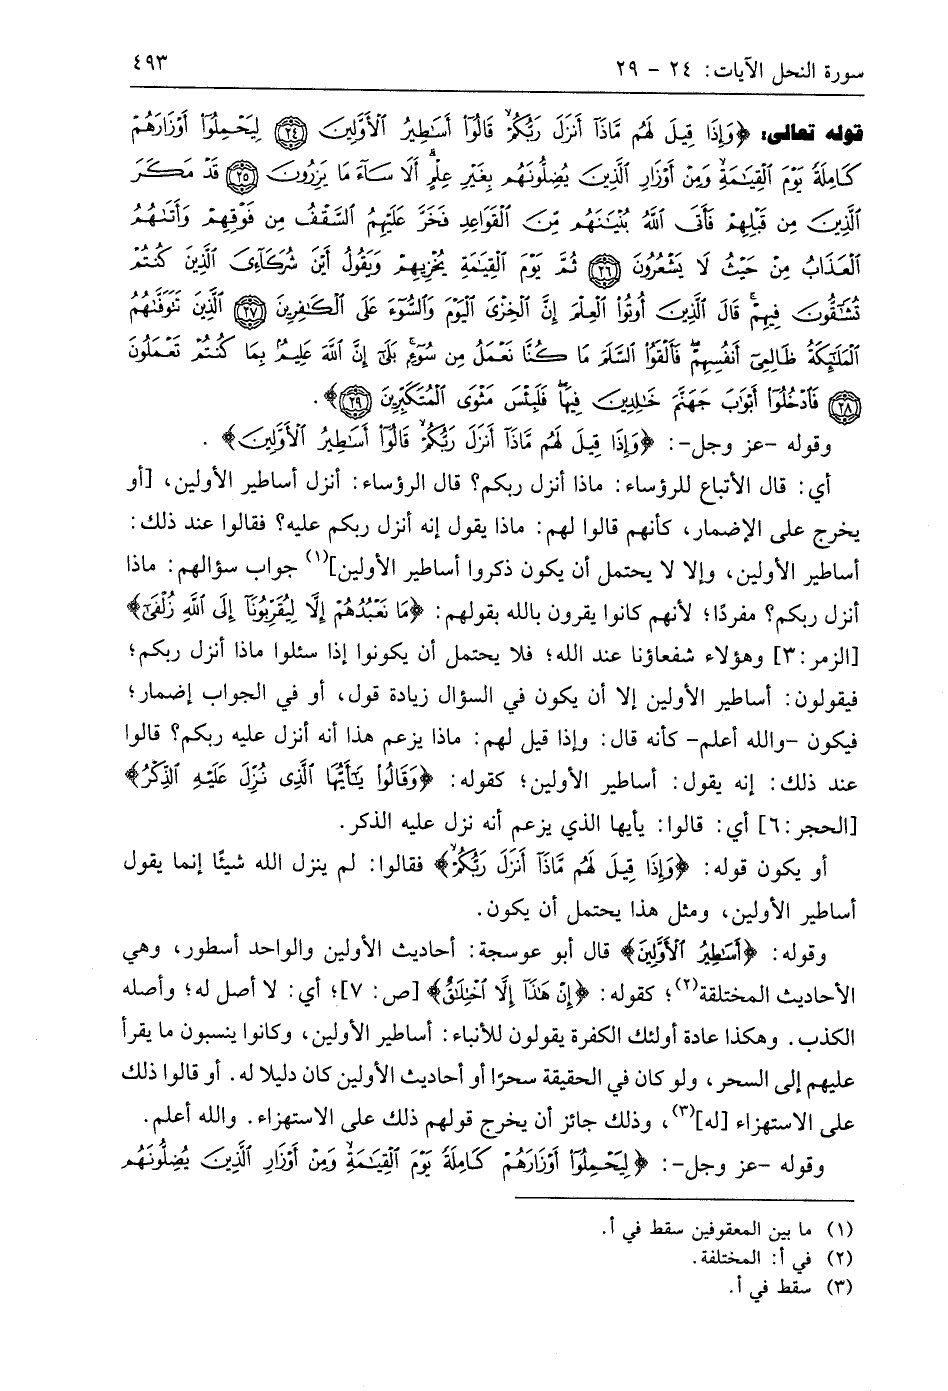 سورة النحل الآيات: ٢٤ - ٢٩
٤٩٣
قوله تعالى: ﴿وَإِذَا قِيلَ لَهُم مَّاذَآ أَنزَلَ رَبُّكُمْ ۙ قَالُوٓا۟ أَسَـٰطِيرُ ٱلْأَوَّلِينَ ﴿٢٤﴾ لِيَحْمِلُوٓا۟ أَوْزَارَهُمْ
كَامِلَةً يَوْمَ ٱلْقِيَـٰمَةِ ۙ وَمِنْ أَوْزَارِ ٱلَّذِينَ يُضِلُّونَهُم بِغَيْرِ عِلْمٍ ۗ أَلَا سَآءَ مَا يَزِرُونَ ﴿٢٥﴾ قَدْ مَكَرَ
ٱلَّذِينَ مِن قَبْلِهِمْ فَأَتَى ٱللَّهُ بُنْيَـٰنَهُم مِّنَ ٱلْقَوَاعِدِ فَخَرَّ عَلَيْهِمُ ٱلسَّقْفُ مِن فَوْقِهِمْ وَأَتَىٰهُمُ
ٱلْعَذَابُ مِنْ حَيْثُ لَا يَشْعُرُونَ ﴿٢٦﴾ ثُمَّ يَوْمَ ٱلْقِيَـٰمَةِ يُخْزِيهِمْ وَيَقُولُ أَيْنَ شُرَكَآءِىَ ٱلَّذِينَ كُنتُمْ
تُشَـٰٓقُّونَ فِيهِمْ ۚ قَالَ ٱلَّذِينَ أُوتُوا۟ ٱلْعِلْمَ إِنَّ ٱلْخِزْىَ ٱلْيَوْمَ وَٱلسُّوٓءَ عَلَى ٱلْكَـٰفِرِينَ ﴿٢٧﴾ ٱلَّذِينَ تَتَوَفَّىٰهُمُ
ٱلْمَلَـٰٓئِكَةُ ظَالِمِىٓ أَنفُسِهِمْ ۖ فَأَلْقَوُا۟ ٱلسَّلَمَ مَا كُنَّا نَعْمَلُ مِن سُوٓءٍۭ ۚ بَلَىٰٓ إِنَّ ٱللَّهَ عَلِيمٌۢ بِمَا كُنتُمْ تَعْمَلُونَ
﴿٢٨﴾ فَٱدْخُلُوٓا۟ أَبْوَٰبَ جَهَنَّمَ خَـٰلِدِينَ فِيهَا ۖ فَلَبِئْسَ مَثْوَى ٱلْمُتَكَبِّرِينَ ﴿٢٩﴾﴾.
وقوله -عز وجل-: ﴿وَإِذَا قِيلَ لَهُم مَّاذَآ أَنزَلَ رَبُّكُمْ ۙ قَالُوٓا۟ أَسَـٰطِيرُ ٱلْأَوَّلِينَ﴾.
أي: قال الأتباع للرؤساء: ماذا أنزل ربكم؟ قال الرؤساء: أنزل أساطير الأولين، [أو
يخرج على الإضمار، كأنهم قالوا لهم: ماذا يقول إنه أنزل ربكم عليه؟ فقالوا عند ذلك:
أساطير الأولين، وإلا لا يحتمل أن يكون ذكروا أساطير الأولين](١) جواب سؤالهم: ماذا
أنزل ربكم؟ مفردًا؛ لأنهم كانوا يقرون بالله بقولهم: ﴿مَا نَعْبُدُهُمْ إِلَّا لِيُقَرِّبُونَآ إِلَى ٱللَّهِ زُلْفَىٰٓ﴾
[الزمر:٣] وهؤلاء شفعاؤنا عند الله؛ فلا يحتمل أن يكونوا إذا سئلوا ماذا أنزل ربكم؛
فيقولون: أساطير الأولين إلا أن يكون في السؤال زيادة قول، أو في الجواب إضمار؛
فيكون -والله أعلم- كأنه قال: وإذا قيل لهم: ماذا يزعم هذا أنه أنزل عليه ربكم؟ قالوا
عند ذلك: إنه يقول: أساطير الأولين؛ كقوله: ﴿وَقَالُوا۟ يَـٰٓأَيُّهَا ٱلَّذِى نُزِّلَ عَلَيْهِ ٱلذِّكْرُ﴾
[الحجر:٦] أي: قالوا: يأيها الذي يزعم أنه نزل عليه الذكر.
أو يكون قوله: ﴿وَإِذَا قِيلَ لَهُم مَّاذَآ أَنزَلَ رَبُّكُمْ ۙ﴾ فقالوا: لم ينزل الله شيئًا إنما يقول
أساطير الأولين، ومثل هذا يحتمل أن يكون.
وقوله: ﴿أَسَـٰطِيرُ ٱلْأَوَّلِينَ﴾ قال أبو عوسجة: أحاديث الأولين والواحد أسطور، وهي
الأحاديث المختلقة(٢)؛ كقوله: ﴿إِنْ هَـٰذَآ إِلَّا ٱخْتِلَـٰقٌ﴾ [ص: ٧]؛ أي: لا أصل له؛ وأصله
الكذب. وهكذا عادة أولئك الكفرة يقولون للأنباء: أساطير الأولين، وكانوا ينسبون ما يقرأ
عليهم إلى السحر، ولو كان في الحقيقة سحرًا أو أحاديث الأولين كان دليلا له. أو قالوا ذلك
على الاستهزاء [له](٣)، وذلك جائز أن يخرج قولهم ذلك على الاستهزاء. والله أعلم.
وقوله -عز وجل-: ﴿لِيَحْمِلُوٓا۟ أَوْزَارَهُمْ كَامِلَةً يَوْمَ ٱلْقِيَـٰمَةِ ۙ وَمِنْ أَوْزَارِ ٱلَّذِينَ يُضِلُّونَهُم
(١) ما بين المعقوفين سقط في أ.
(٢) في أ: المختلفة.
(٣) سقط في أ.